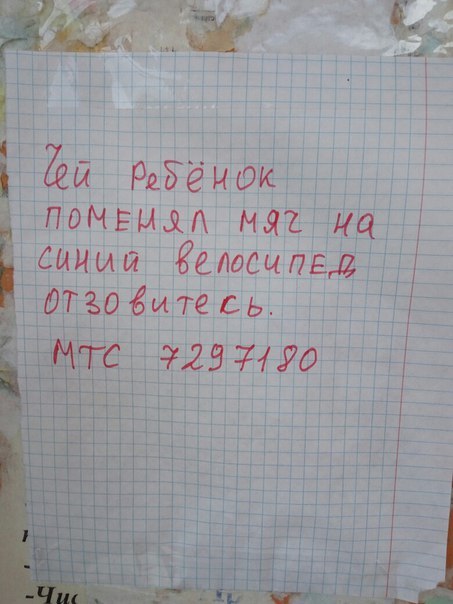 Чей ребёнок
поменял мяч на
синий велосипед
отзовитесь.
МТС 7297180
-Чис